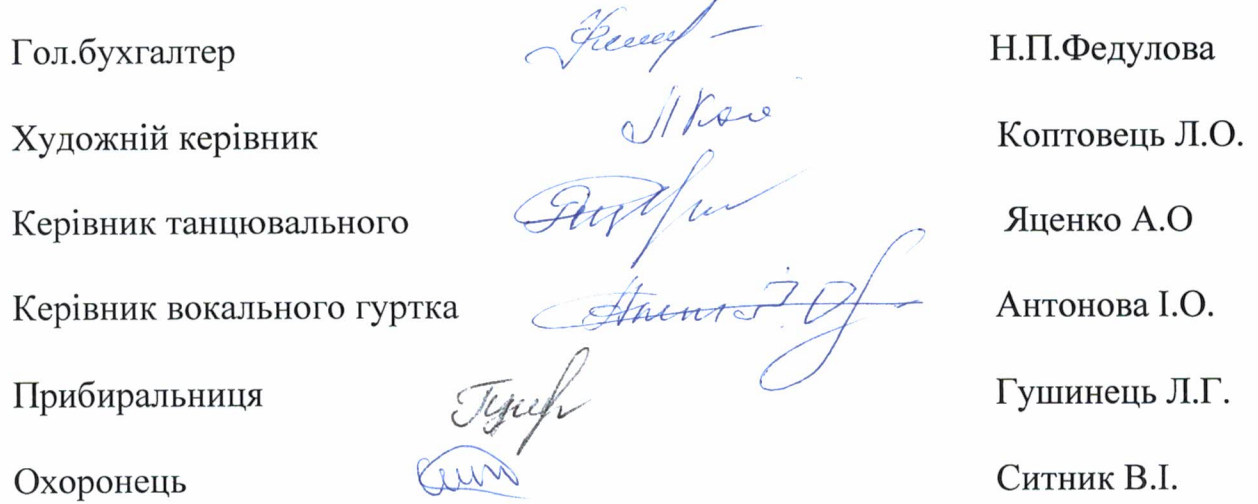 Гол.бухгалтер Н.П.Федулова
Художній керівник Коптовець Л.О.
Керівник танцювального Яценко А.О
Керівник вокального гуртка Антонова І.О.
Прибиральниця Гушинець Л.Г.
Охоронець Ситник В.І.